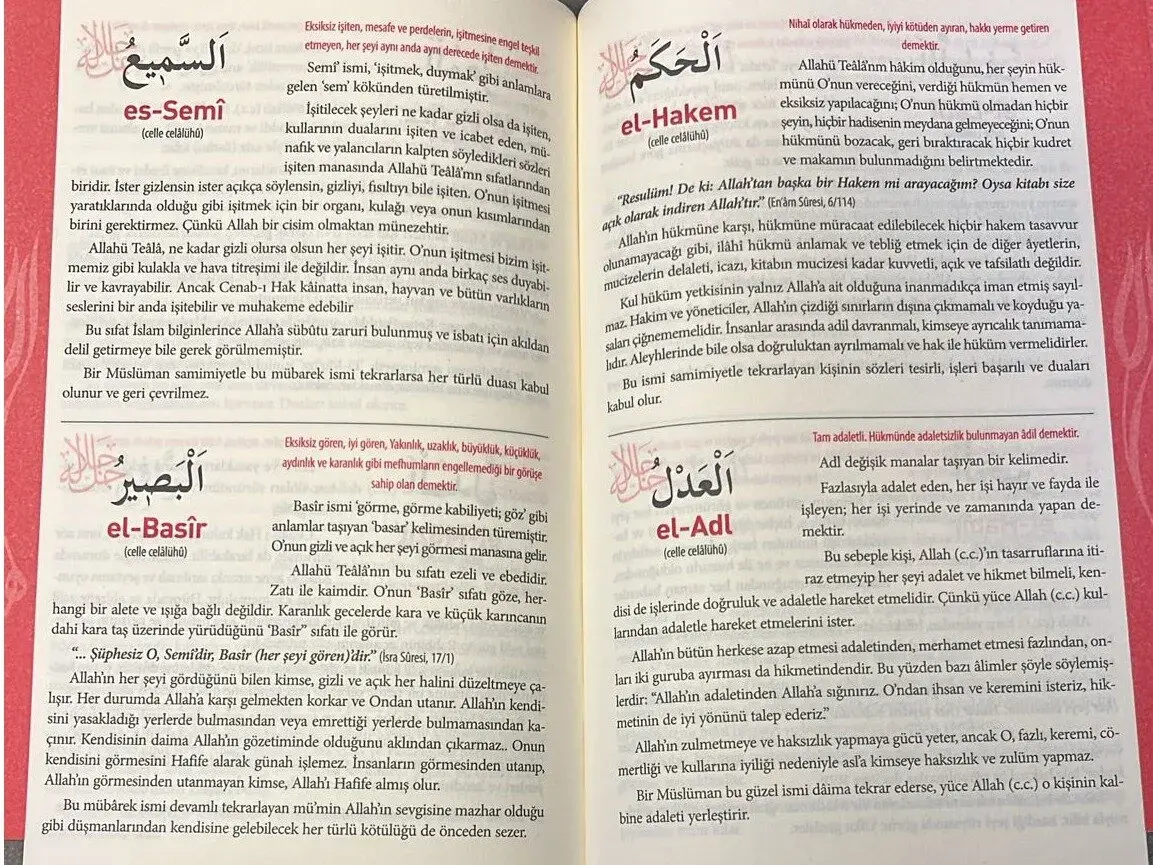 Eksiksiz işiten, mesafe ve perdelerin, işitmesine engel teşkil
etmeyen, her şeyi aynı anda aynı derecede işiten demektir.
اَلسَّمِيعُ
es-Semî
(celle celâlühû)
Semî’ ismi, ‘işitmek, duymak’ gibi anlamlara
gelen ‘sem’ kökünden türetilmiştir.
İşitilecek şeyleri ne kadar gizli olsa da işiten,
kullarının dualarını işiten ve icabet eden, mü-
nafık ve yalancıların kalpten söyledikleri sözleri
işiten manasında Allahü Teâlâ’nın sıfatlarından
biridir. İster gizlensin ister açıkça söylensin, gizliyi, fısıltıyı bile işiten. O’nun işitmesi
yaratıklarında olduğu gibi işitmek için bir organı, kulağı veya onun kısımlarından
birini gerektirmez. Çünkü Allah bir cisim olmaktan münezehtir.
Allahü Teâlâ, ne kadar gizli olursa olsun her şeyi işitir. O’nun işitmesi bizim işit-
memiz gibi kulakla ve hava titreşimi ile değildir. İnsan aynı anda birkaç ses duyabi-
lir ve kavrayabilir. Ancak Cenab-ı Hak kâinatta insan, hayvan ve bütün varlıkların
seslerini bir anda işitebilir ve muhakeme edebilir
Bu sıfat İslam bilginlerince Allah’a sübûtu zaruri bulunmuş ve isbatı için akıldan
delil getirmeye bile gerek görülmemiştir.
Bir Müslüman samimiyetle bu mübarek ismi tekrarlarsa her türlü duası kabul
olunur ve geri çevrilmez.
Eksiksiz gören, iyi gören, Yakınlık, uzaklık, büyüklük, küçüklük,
aydınlık ve karanlık gibi mefhumların engellemediği bir görüşe
sahip olan demektir.
اَلْبَصِيرُ
el-Basîr
(celle celâlühû)
Basîr ismi ‘görme, görme kabiliyeti; göz’ gibi
anlamlar taşıyan ‘basar’ kelimesinden türemiştir.
O’nun gizli ve açık her şeyi görmesi manasına gelir.
Allahü Teâlâ’nın bu sıfatı ezeli ve ebedidir.
Zatı ile kaimdir. O’nun ‘Basîr’ sıfatı göze, her-
hangi bir alete ve ışığa bağlı değildir. Karanlık gecelerde kara ve küçük karıncanın
dahi kara taş üzerinde yürüdüğünü ‘Basîr” sıfatı ile görür.
“... Şüphesiz O, Semî’dir, Basîr (her şeyi gören)’dir.” (İsra Sûresi, 17/1)
Allah’ın her şeyi gördüğünü bilen kimse, gizli ve açık her halini düzeltmeye ça-
lışır. Her durumda Allah’a karşı gelmekten korkar ve Ondan utanır. Allah’ın kendi-
sini yasakladığı yerlerde bulmasından veya emrettiği yerlerde bulmamasından ka-
çınır. Kendisinin daima Allah’ın gözetiminde olduğunu aklından çıkarmaz.. Onun
kendisini görmesini Hafife alarak günah işlemez. İnsanların görmesinden utanıp,
Allah’ın görmesinden utanmayan kimse, Allah’ı Hafife almış olur.
Bu mübârek ismi devamlı tekrarlayan mü’min Allah’ın sevgisine mazhar olduğu
gibi düşmanlarından kendisine gelebilecek her türlü kötülüğü de önceden sezer.
Nihaî olarak hükmeden, iyiyi kötüden ayıran, hakkı yerme getiren
demektir.
اَلْحَكَمُ
el-Hakem
(celle celâlühû)
Allahü Teâlâ’nın hâkim olduğunu, her şeyin hük-
münü O’nun vereceğini, verdiği hükmün hemen ve
eksiksiz yapılacağını; O’nun hükmü olmadan hiçbir
şeyin, hiçbir hadisenin meydana gelmeyeceğini; O’nun
hükmünü bozacak, geri bıraktıracak hiçbir kudret
ve makamın bulunmadığını belirtmektedir.
“Resulüm! De ki: Allah’tan başka bir Hakem mi arayacağım? Oysa kitabı size
açık olarak indiren Allah’tır.” (En’âm Sûresi, 6/114)
Allah’ın hükmüne karşı, hükmüne müracaat edilebilecek hiçbir hakem tasavvur
olunamayacağı gibi, ilâhi hükmü anlamak ve tebliğ etmek için de diğer âyetlerin,
mucizelerin delaleti, icazı, kitabın mucizesi kadar kuvvetli, açık ve tafsilatlı değildir.
Kul hüküm yetkisinin yalnız Allah’a ait olduğuna inanmadıkça iman etmiş sayıl-
maz. Hakim ve yöneticiler, Allah’ın çizdiği sınırların dışına çıkmamalı ve koyduğu ya-
saları çiğnememelidir. İnsanlar arasında adil davranmalı, kimseye ayrıcalık tanımama-
lıdır. Aleyhlerinde bile olsa doğruluktan ayrılmamalı ve hak ile hüküm vermelidirler.
Bu ismi samimiyetle tekrarlayan kişinin sözleri tesirli, işleri başarılı ve duaları
kabul olur.
Tam adaletli. Hükmünde adaletsizlik bulunmayan âdil demektir.
اَلْعَدْلُ
el-Adl
(celle celâlühû)
Adl değişik manalar taşıyan bir kelimedir.
Fazlasıyla adalet eden, her işi hayır ve fayda ile
işleyen; her işi yerinde ve zamanında yapan de-
mektir.
Bu sebeple kişi, Allah (c.c.)’ın tasarruflarına iti-
raz etmeyip her şeyi adalet ve hikmet bilmeli, ken-
disi de işlerinde doğruluk ve adaletle hareket etmelidir. Çünkü yüce Allah (c.c.) kul-
larından adaletle hareket etmelerini ister.
Allah’ın bütün herkese azap etmesi adaletinden, merhamet etmesi fazlından, on-
ları iki guruba ayırması da hikmetindendir. Bu yüzden bazı âlimler şöyle söylemiş-
lerdir: “Allah’ın adaletinden Allah’a sığınırız. O’ndan ihsan ve keremini isteriz, hik-
metinin de iyi yönünü talep ederiz.”
Allah’ın zulmetmeye ve haksızlık yapmaya gücü yeter, ancak O, fazlı, keremi, cö-
mertliği ve kullarına iyiliği nedeniyle asl’a kimseye haksızlık ve zulüm yapmaz.
Bir Müslüman bu güzel ismi dâima tekrar ederse, yüce Allah (c.c.) o kişinin kal-
bine adaleti yerleştirir.